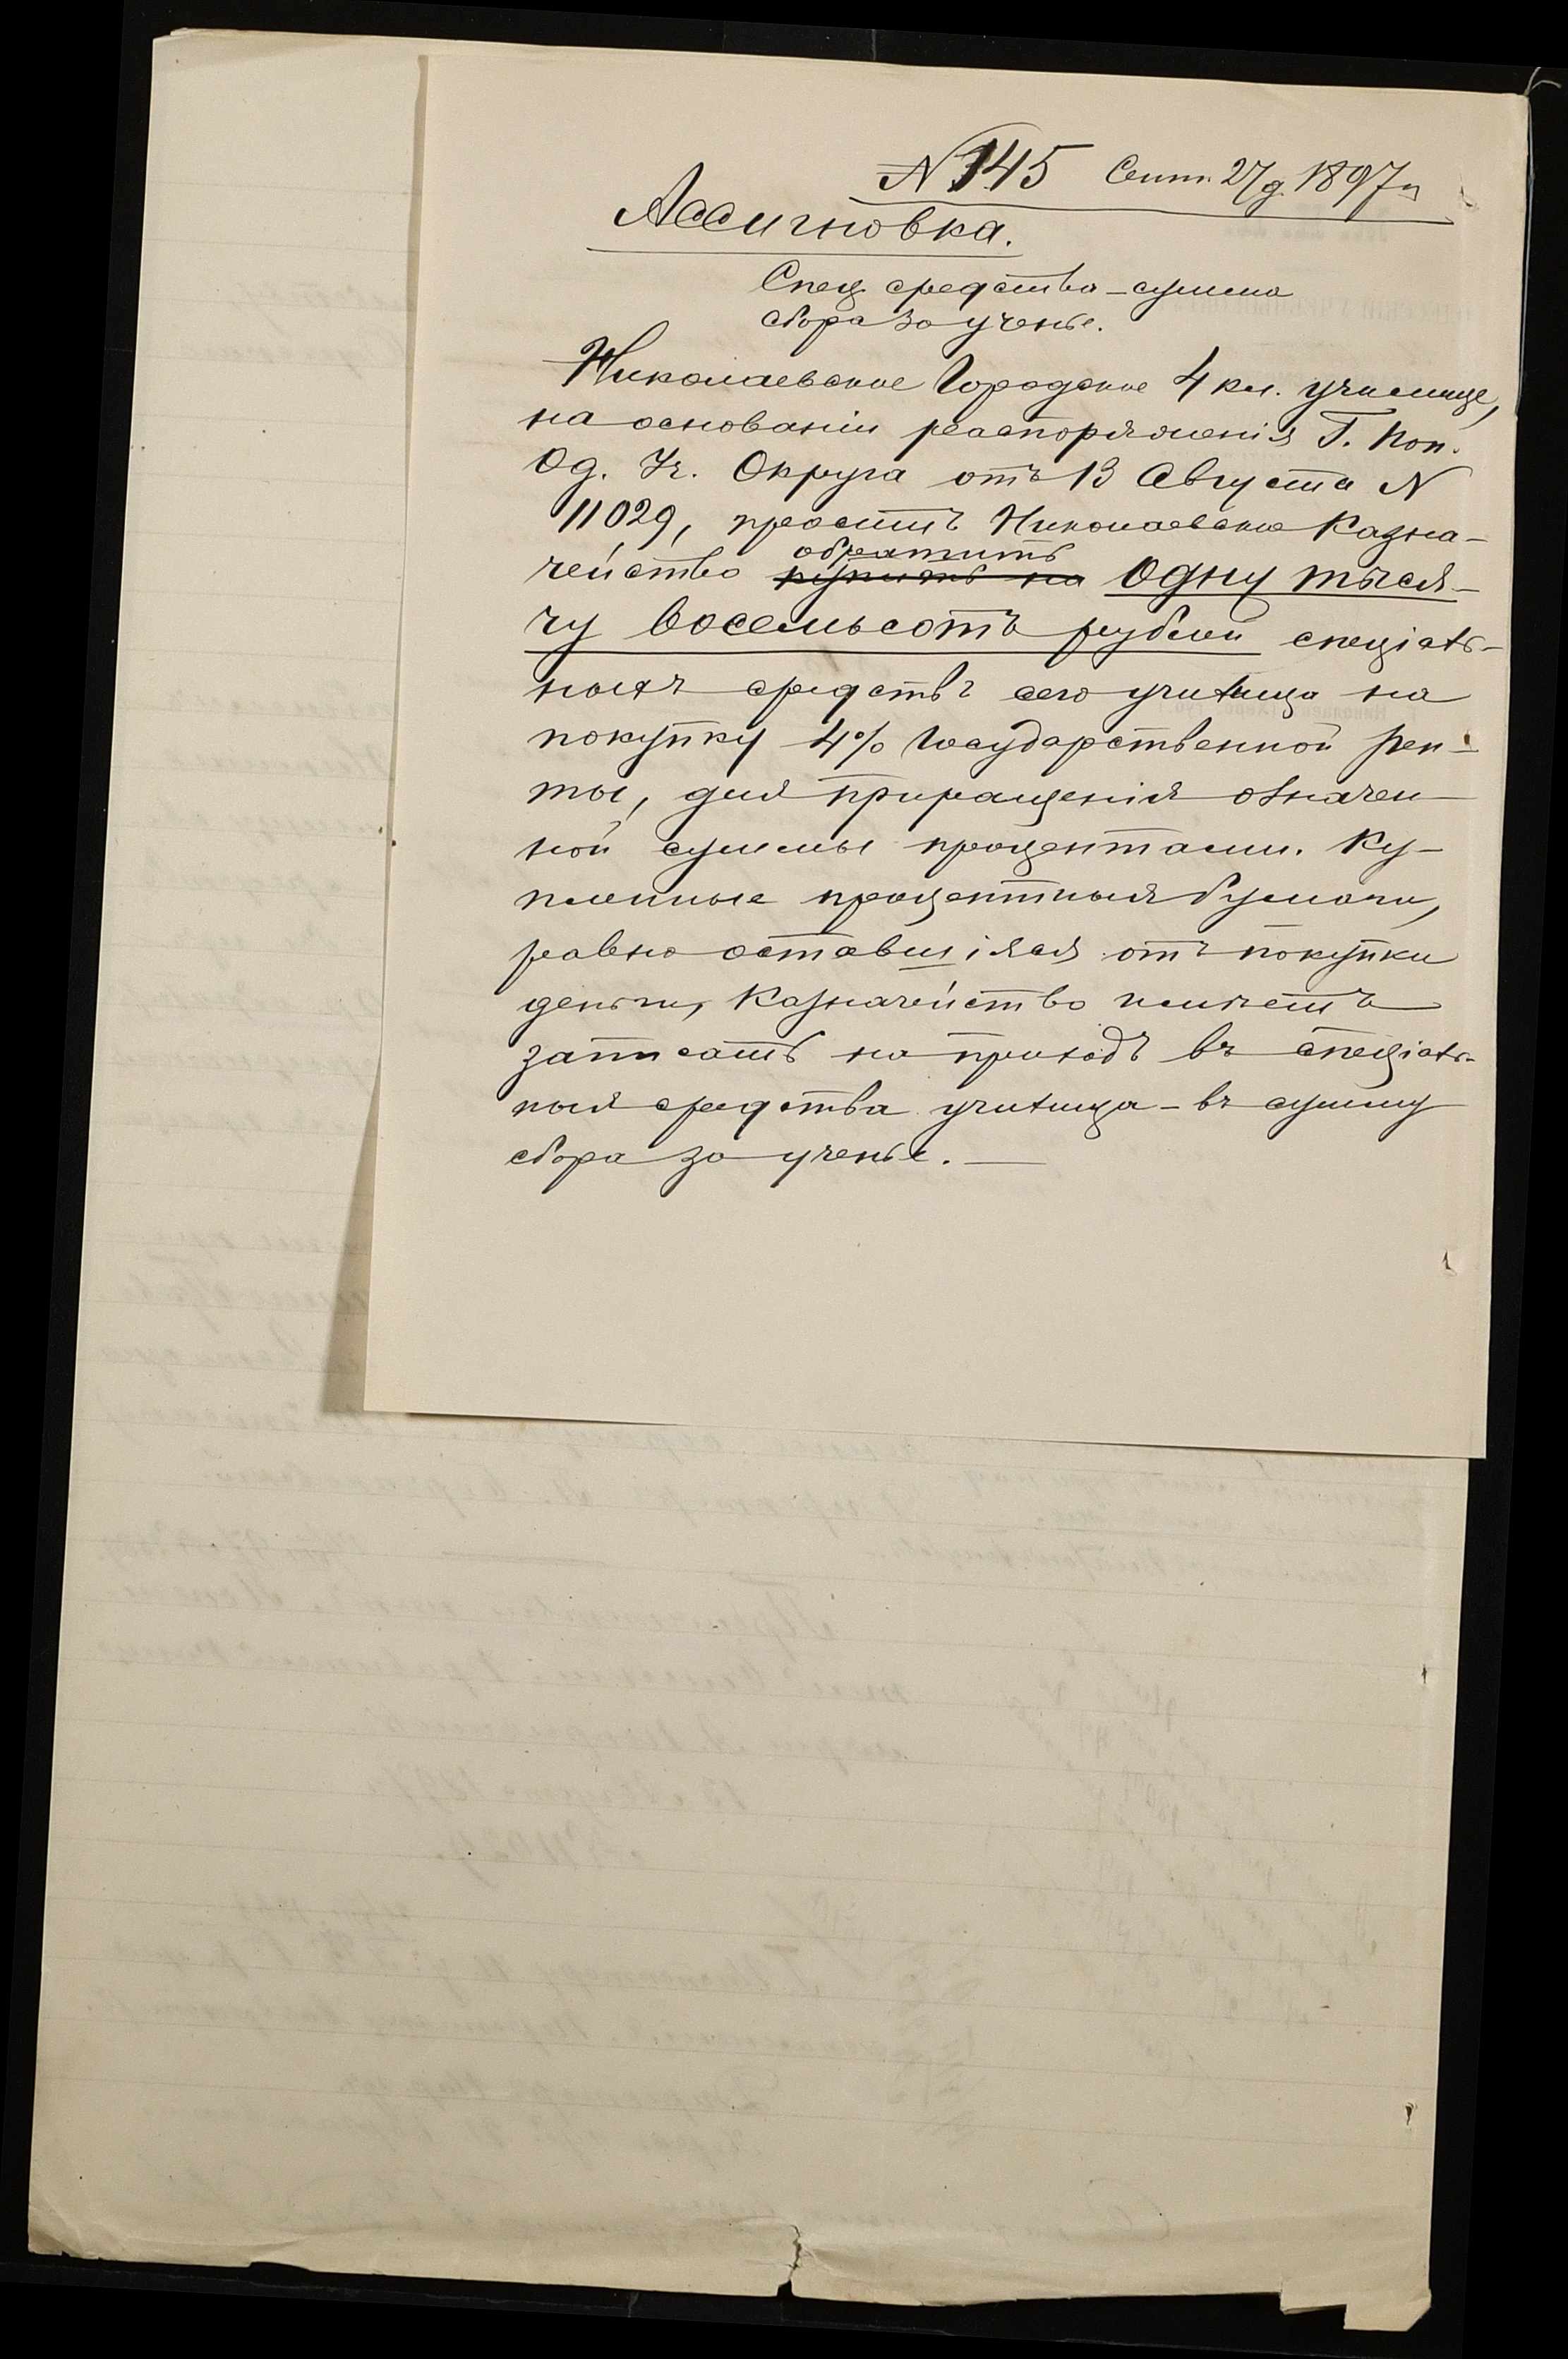 N 145 Сент. 27 д. 1897 г.
Ассигновка.
Спец. средства - сумма
сбора за ученье.
Николаевское Городское 4 кл. училище,
на основаніи распоряженія Г. Поп.
Од. Уч. Округа отъ 13 Августа N
11029, проситъ Николаевское Казна-
обратить
чейство купить на Одну тыся-
чу восемьсотъ рублей спеціаль-
ныхъ средствъ сего училища на
покупку 4% Государственной рен-
ты, для приращенія означен-
ной суммы процентами. Ку-
пленные процентныя бумаги,
равно оставшіяся отъ покупки
деньги, Казначейство имѣетъ
записать на приходъ въ спеціаль-
ныя средства училища - въ сумму
сбора за ученье. —